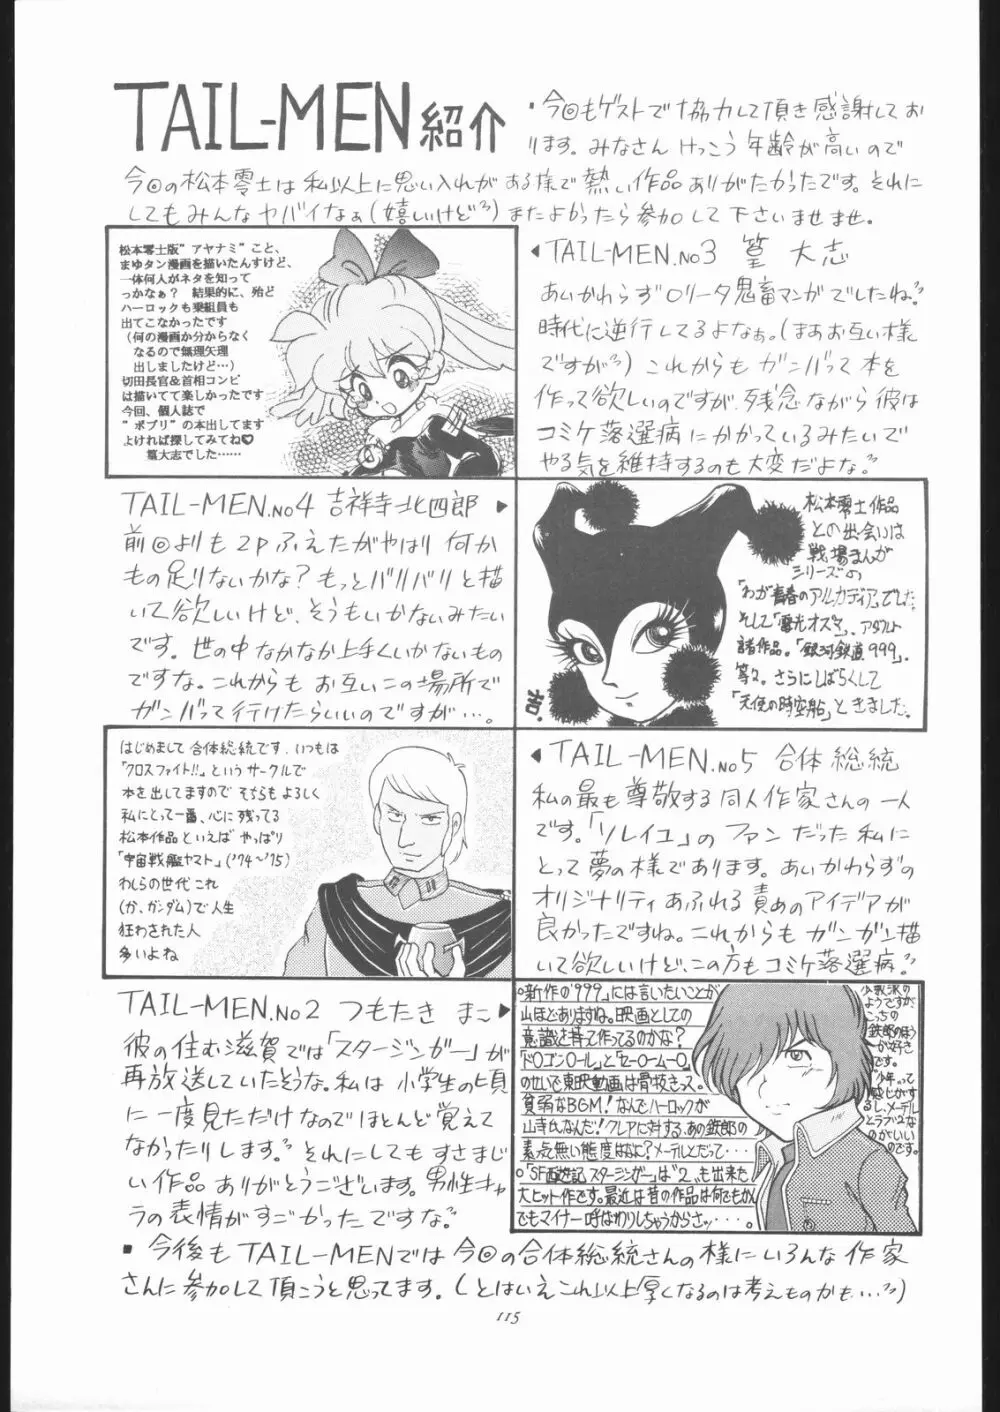 TAIL-MEN紹介
・今回もゲストで協力して頂き感謝してお
ります。みなさん けっこう年齢が高いので
今回の松本零士は私以上に思い入れがある様で熱い作品ありがたかったです。それに
してもみんなヤバイなぁ(嬉しいけど)またよかったら参加して下さいませませ。
松本零士版"アヤナミ"こと、
まゆタン漫画を描いたんすけど、
一体何人がネタを知って
っかなぁ? 結果的に、殆ど
ハーロックも乗組員も
出てこなかったです
(何の漫画か分からなく
なるので無理矢理
出しましたけど…)
切田長官&首相コンビ
は描いてて楽しかったです
今回、個人誌で
"ポプリ"の本出してます
よければ探してみてね♡
篁大志でした……
◀TAIL-MEN.No3 篁 大志
あいかわらずロリータ鬼畜マンガでしたね。
時代に逆行してるよなぁ。(まあお互い様
ですが)これからも ガンバって本を
作って欲しいのですが、残念ながら彼は
コミケ落選病にかかっているみたいで
やる気を維持するのも大変だよな。
TAIL-MEN.No4 吉祥寺北四郎 ▶
前回よりも2Pふえたがやはり何か
もの足りないかな?もっとバリバリと描
いて欲しいけど、そうもいかないみたい
です。世の中なかなか上手くいかないもの
ですな。これからも お互いこの場所で
ガンバって行けたらいいのですが…。
松本零士作品
との出会いは
戦場まんが
シリーズの
「わが青春のアルカディア」でした。
そして「電光オズマ」、アダルト
諸作品。「銀河鉄道999」.
等々。さらにしばらくして
「天使の時空船」ときました。
吉.
はじめまして合体総統です.いつもは
「クロスファイト!!」というサークルで
本を出してますので そちらもよろしく
私にとって一番、心に残ってる
松本作品といえば やっぱり
「宇宙戦艦ヤマト」('74〜'75)
わしらの世代これ
(か、ガンダム)で人生
狂わされた人
多いよね
◀TAIL-MEN.No5 合体 総統
私の最も尊敬する同人作家さんの一人
です。「ソレイユ」のファンだった私に
とって夢の様であります。あいかわらずの
オリジナリティあふれる責めのアイデアが
良かったですね。これからもガンガン描
いて欲しいけど、この方もコミケ落選病。
TAIL-MEN.No2 つもたき まこ
彼の住む滋賀では「スタージンガー」が
再放送していたそうな。私は小学生の頃
に一度見ただけなのでほとんど覚えて
なかったりします。それにしてもすさまじ
い作品ありがとうございます。男性キャ
ラの表情がすごかったですな。
○新作の'999」には言いたいことが
山ほどありますね。映画としての
意識を持って作ってるのかな?
「ドロゴンロール」と「セーロームーロ」
のせいで東映動画は骨抜きっス。
貧弱なBGM!なんでハーロックが
山寺氏なんだ!クレアに対する、あの鉄郎の
素っ気無い態度はなに?メーテルとだって・・・
○「SF西遊記スタージンガー」は"2"も出来た
大ヒット作です。最近は昔の作品は何でもかん
でもマイナー呼ばわりしちゃうからさッ・・・。
少数派の
ようですが、
こっちの
鉄郎のほう
が好き
です。
「少年」って
感じがす
るし、メーテル
とラブラブな
のがいい
のです。
・今後もTAIL-MENでは今回の合体総統さんの様にいろんな作家
さんに参加して頂こうと思ってます。(とはいえこれ以上厚くなるのは考えものかも…)
115